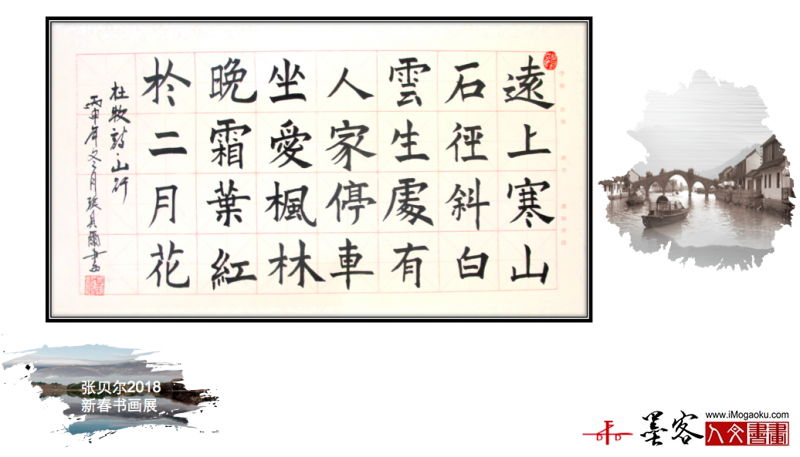 遠上寒山
石徑斜白
雲生處有
人家停車
坐愛楓林
晚霜葉紅
於二月花
杜牧詩山行
丙申年冬月張貝爾書
张贝尔2018
新春书画展
墨客
www.iMogaoku.com
人文書畫